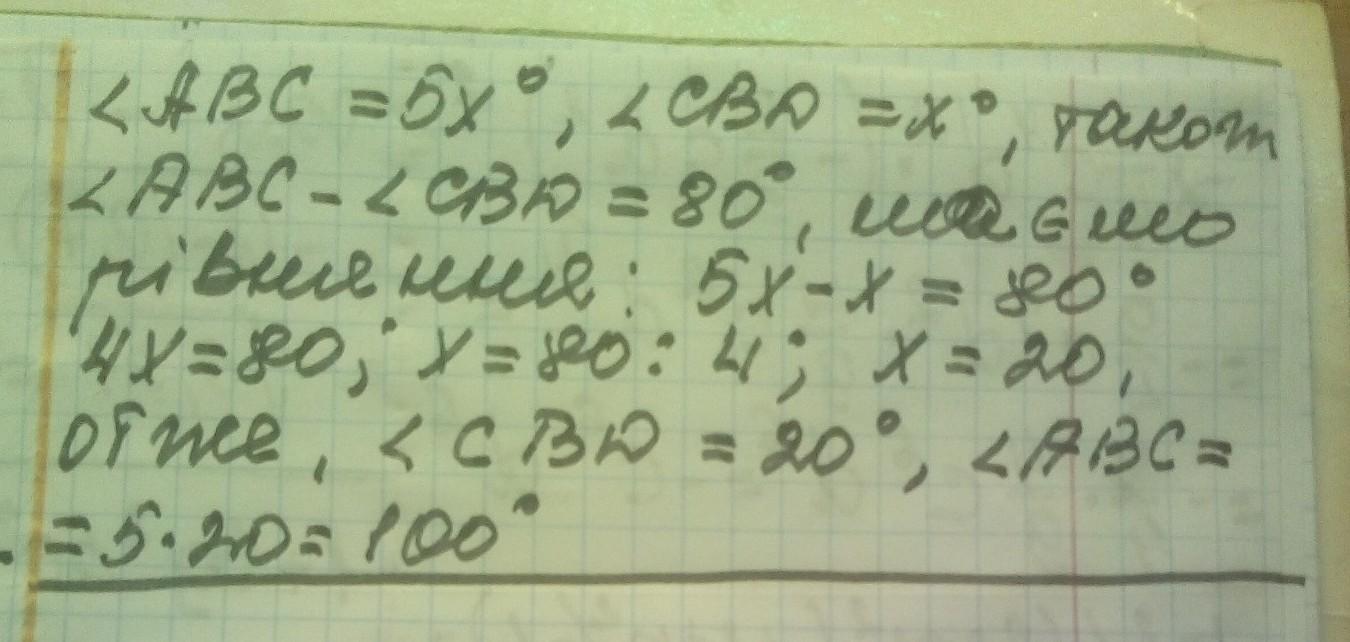 ∠ABC = 5x°, ∠CBD = x°, також
∠ABC - ∠CBD = 80°, маємо
рівняння: 5x - x = 80°
4x = 80; x = 80 : 4; x = 20,
отже, ∠CBD = 20°, ∠ABC =
= 5·20 = 100°